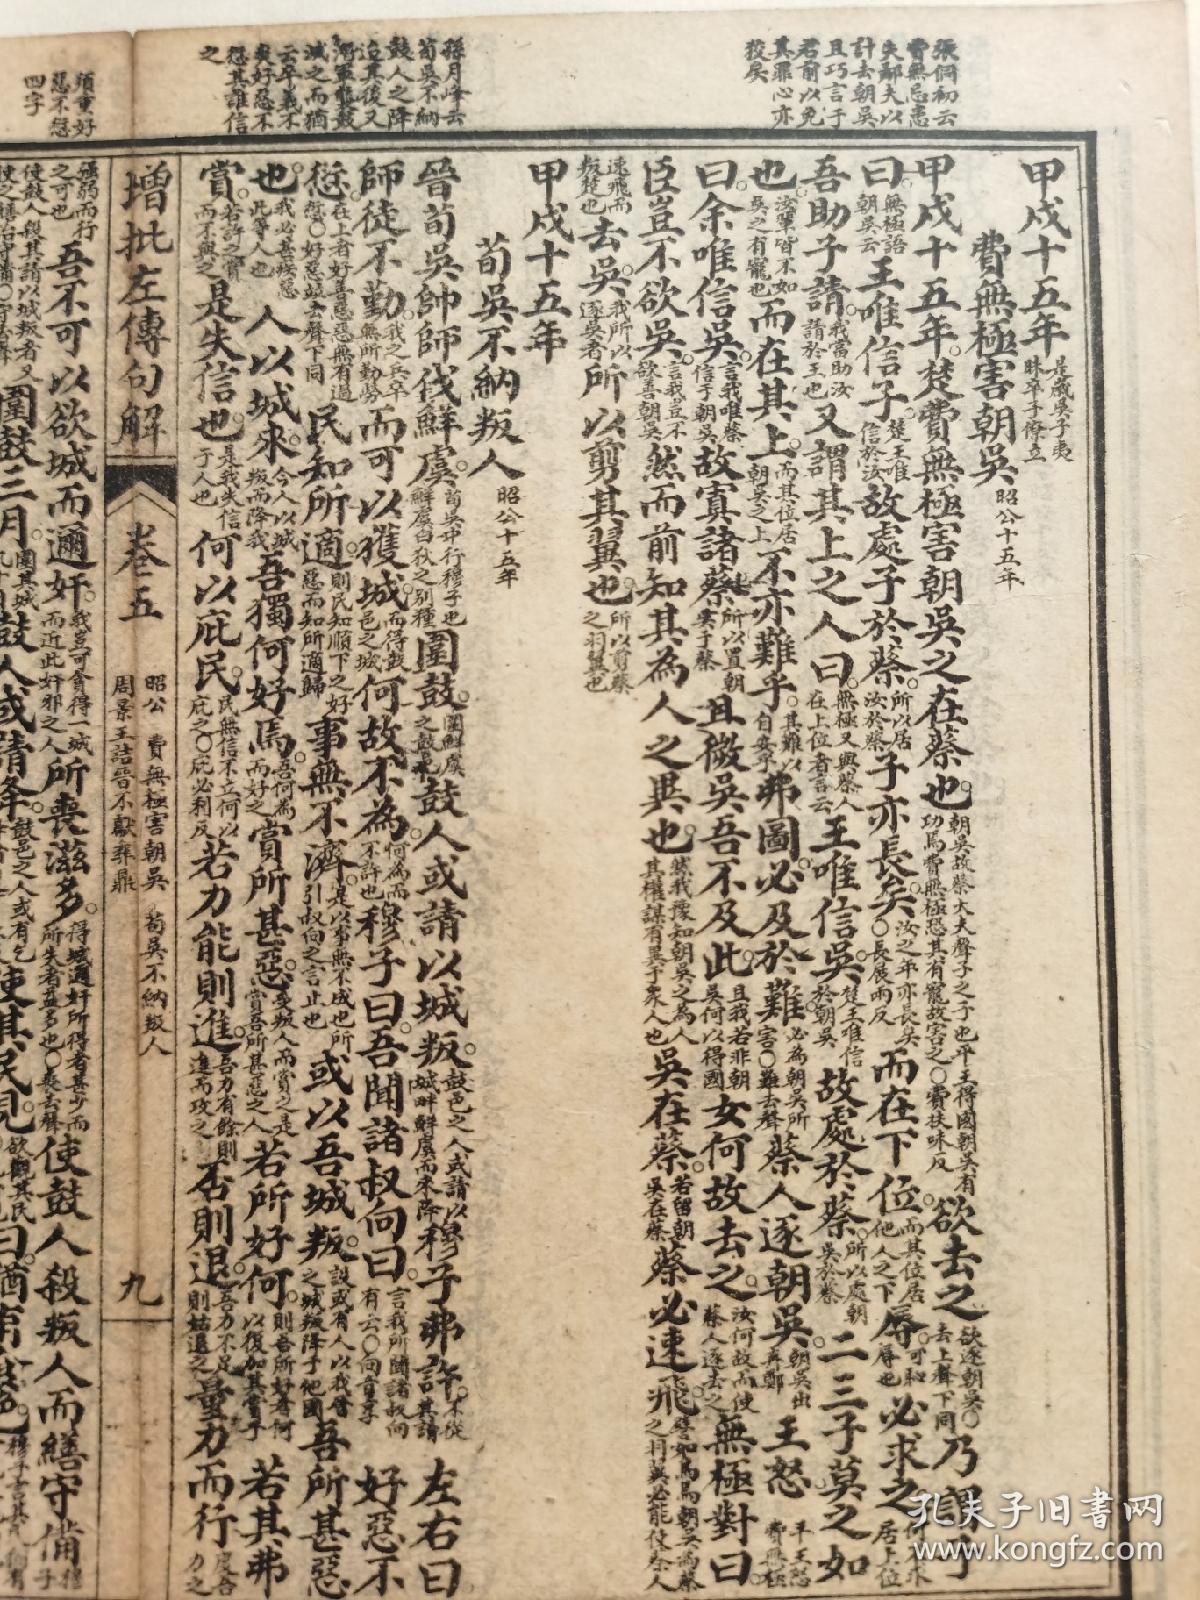 張侗初云
費無忌恚
計去朝吳
且巧言于
君前以免
其罪心亦
狡矣
孫月峰云
荀吳不納
鼓人之降
迨其後又
滅之而猶
云卒義不
爽好惡不
愆其誰信
之
惡不愆
四字
甲戌十五年是歲吳子夷昧卒子僚立
費無極害朝吳昭公十五年
甲戌十五年。楚費無極害朝吳之在蔡也。朝吳故蔡大夫聲子之子也平王得國朝吳有功焉費無極恐其有寵故害之○費扶味反欲去之欲逐朝吳○去上聲下同乃謂
曰。無極語朝吳云王唯信子。楚王唯信於汝故處子於蔡。所以居汝於蔡子亦長矣。汝之年亦長矣○長展兩反而在下位。而其位居他人之下辱。可恥辱也必求之
吾助子請。我當助汝請於王也又謂其上之人曰。無極又與蔡人在上位者言云王唯信吳。楚王唯信於朝吳故處於蔡。所以處朝吳於蔡二三子莫之如
也。汝輩皆不如吳之有寵也而在其上。而其位居朝吳之上不亦難乎。其難以自安乎弗圖。必及於難。必為朝吳所害○難去聲蔡人逐朝吳。朝吳出再鄭王怒平王怒費無極
曰。余唯信吳。言我唯信于朝吳故寘諸蔡。所以置朝吳于蔡且微吳。吾不及此。且我若非朝吳何以得國女何故去之。汝何故而使蔡人逐去之無極對曰。
臣豈不欲吳。言我豈不欲善朝吳然而前知其為人之異也。然我豫知朝吳之為人其權謀有異于眾人也吳在蔡。若留朝吳在蔡蔡必速飛。譬如鳥焉朝吳為蔡之羽翼必能使蔡人
速飛而叛楚也去吳。我所以逐吳者所以剪其翼也。所以剪蔡之羽翼也
甲戌十五年
荀吳不納叛人昭公十五年
晉荀吳帥師伐鮮虞。荀吳中行穆子也鮮虞白狄之別種圍鼓。圍鮮虞之鼓邑鼓人或請以城叛。鼓邑之人或請以城畔鮮虞而來降穆子弗許。不從其請左右曰
師徒不勤。我之兵卒無所勤勞而可以獲城。而得鼓邑之城何故不為。何為而不許也穆子曰。吾聞諸叔向曰。言我所聞諸叔向有云○向音享好惡不
愆。在上者好善惡惡無有過愆○好惡並去聲下同民知所適。則民知順下之好惡而知所適歸事無不濟。是以事無不成也所引叔向之言止也或以吾城叛。設或有人以我晉之城叛降于他國吾所甚惡
也。我必甚疾惡此等人也人以城來。今人以城叛而降我吾獨何好焉。吾何為而好之賞所甚惡。受叛人而賞之是賞吾所甚惡之人若所好何。則吾所好者何以復加其賞乎若其弗
賞。若許之賞而不與之是失信也。是我失信于人也何以庇民。民無信不立何以庇之○庇必利反若力能則進。吾力有餘則進而攻之否則退。吾力不足則姑退之量力而行度吾力之
強弱而行之可也吾不可以欲城而邇奸。我豈可貪得一城而近此奸邪之人所喪滋多。得城邇奸所得者甚少而所失者益多也○喪去聲使鼓人殺叛人而繕守備。
圍鼓三月。鼓人或請降。使其民見。曰。猶有食色。
增批左傳句解
卷五
昭公 費無極害朝吳 荀吳不納叛人
周景王詰晉不獻彝鼎
九
孔夫子旧书网
www.kongfz.com